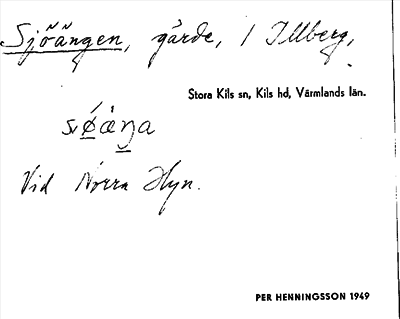 Sjöängen, gärde, 1 Illberg,
Stora Kils sn, Kils hd, Värmlands län.
Vid Norra Hyn.
PER HENNINGSSON 1949